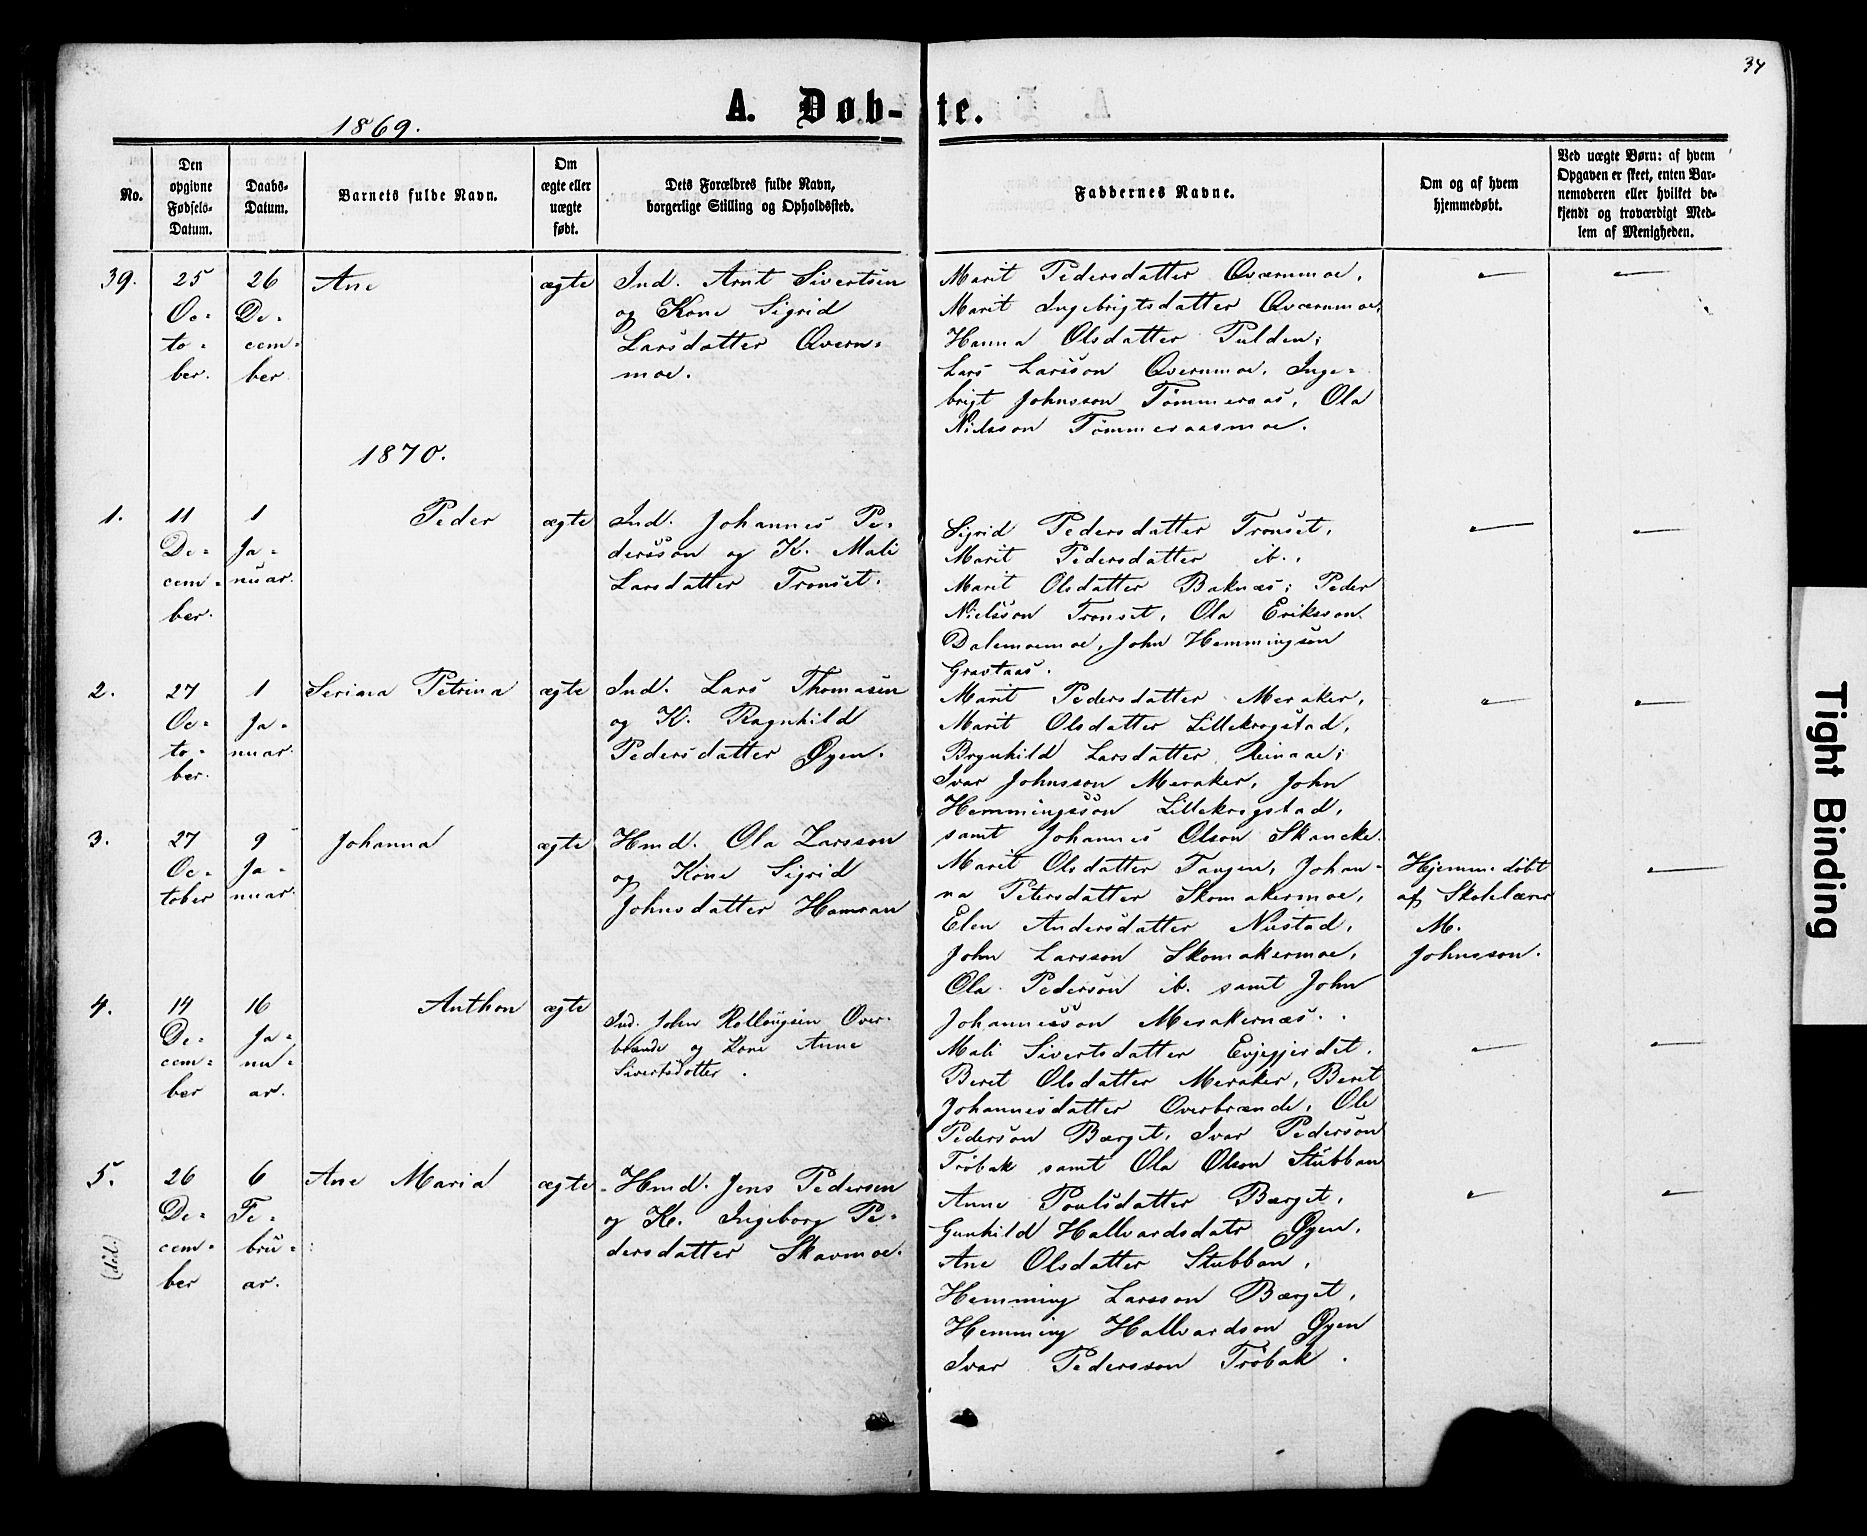 34
A. Døb-te.
1869.
No.
Den opgivne Fødsels-Datum.
Daabs-Datum.
Barnets fulde Navn.
Om ægte eller uægte født.
Dets Forældres fulde Navn, borgerlige Stilling og Opholdssted.
Faddernes Navne.
Om og af hvem hjemmedøbt.
Ved uægte Børn: af hvem Opgaven er skeet, enten Barnemoderen eller hvilket bekjendt og troværdigt Medlem af Menigheden.
39.
25
Oc-
to-
ber.
26
De-
cem-
ber
Ane
ægte
Ind. Arnt Sivertsen
og Kone Sigrid
Larsdatter Qvern-
moe.
Marit Pedersdatter Qværnmoe,
Marit Ingebrigtsdatter Qværnmoe,
Hanna Olsdatter Pulden;
Lars Larsson Qvernmoe, Inge-
brigt Johnsson Tømmeraas, Ola
Nielsson Tømmeraasmoe.
1870.
1.
11
De-
cem-
ber.
1
Ja-
nuar.
Peder
ægte
Ind. Johannes Pe-
dersson og K. Mali
Larsdatter Tronset.
Sigrid Pedersdatter Tronset,
Marit Pedersdatter ib.,
Marit Olsdatter Baknæs; Peder
Nielsson Tronset, Ola Eriksson
Dalemoemoe, John Hemmingsen
Gravtaas.
2.
27
Oc-
to-
ber.
1
Ja-
nuar.
Serina Petrina
ægte
Ind. Lars Thomasen
og K. Ragnhild
Pedersdatter Øyen.
Marit Pedersdatter Meraker,
Marit Olsdatter Lillekrogstad,
Brynhild Larsdatter Reinaae;
Ivar Johnsson Meraker, John
Hemmingsson Lillekrogstad,
samt Johannes Olson Skancke.
3.
27
Oc-
tober
9
Ja-
nuar.
Johanna
ægte
Hmd. Ola Larsson
og Kone Sigrid
Johnsdatter Hamran
Marit Olsdatter Tangen, Johan-
na Petersdatter Skomakermoe,
Elen Andersdatter Nustad,
John Larsson Skomakermoe,
Ola Pederson ib. samt John
Johannesson Merakernæs.
Hjemmedøbt
af Skolelærer
M.
Johnsson.
4.
14
De-
cem-
ber
16
Ja-
nu-
ar.
Anthon
ægte
Ind. John Rollaugsen Over-
brænde og Kone Anne
Sivertsdotter.
Mali Sivertsdatter Evjegjerdet,
Beret Olsdatter Meraker, Beret
Johannesdatter Overbrænde, Ole
Pederson Bærget, Ivar Pederson
Tröbak samt Ola Olson Stubban
5.
(död.)
26
De-
cem-
ber
6
Fe-
bru-
ar.
Ane Maria
ægte
Hmd. Jens Pedersen
og K. Ingeborg Pe-
dersdatter Skavmoe.
Anne Poulsdatter Bærget,
Gunhild Hallvardsdatr Øyen,
Ane Olsdatter Stubban,
Hemming Larsson Bærget,
Hemming Hallvardson Øyen
Ivar Pedersson Tröbak.
Tight Binding